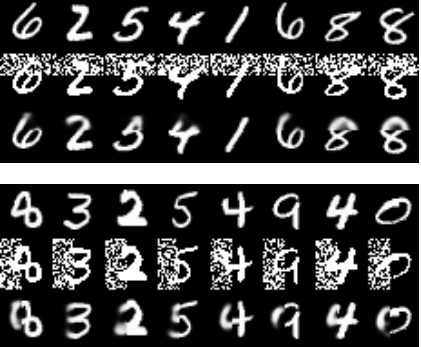 6 2 5 4 1 6 8 8
6 2 5 4 1 6 8 8
6 2 3 4 1 6 8 8
8 3 2 5 4 9 4 0
8 3 2 5 4 9 4 0
8 3 2 5 4 9 4 0